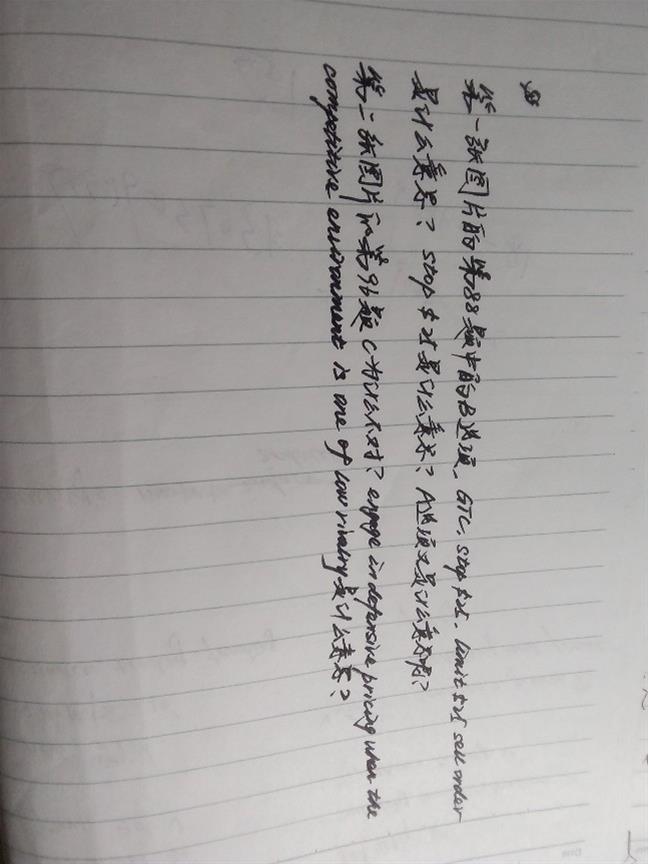 第一张图片的第88题中的B选项、GTC, stop $25, limit $25 sell order
是什么意思? stop $25是什么意思? A选项又是什么意思啊?
第二张图片的第96题C为什么不对? engage in defensive pricing when the
competitive environment is one of low rivalry是什么意思?